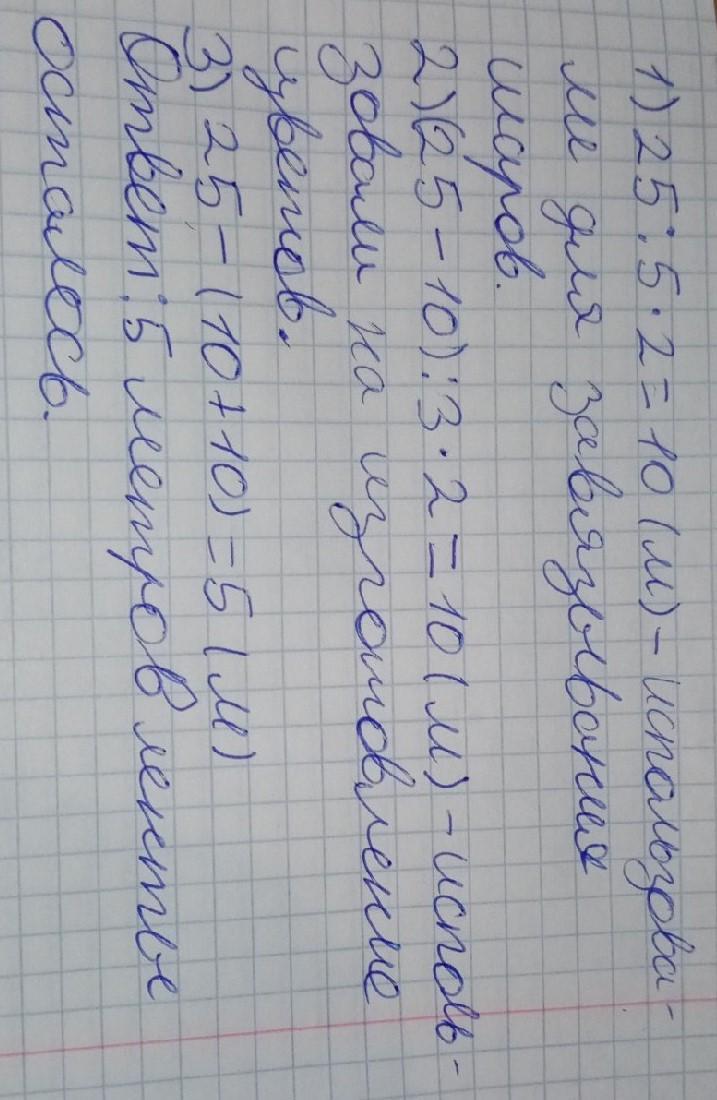 1) 25 : 5 · 2 = 10 (м) - использова-
ли для завязывания
шаров.
2) (25 - 10) : 3 · 2 = 10 (м) - исполь-
зовали на изготовление
цветов.
3) 25 - (10 + 10) = 5 (м)
Ответ : 5 метров ленты
осталось.